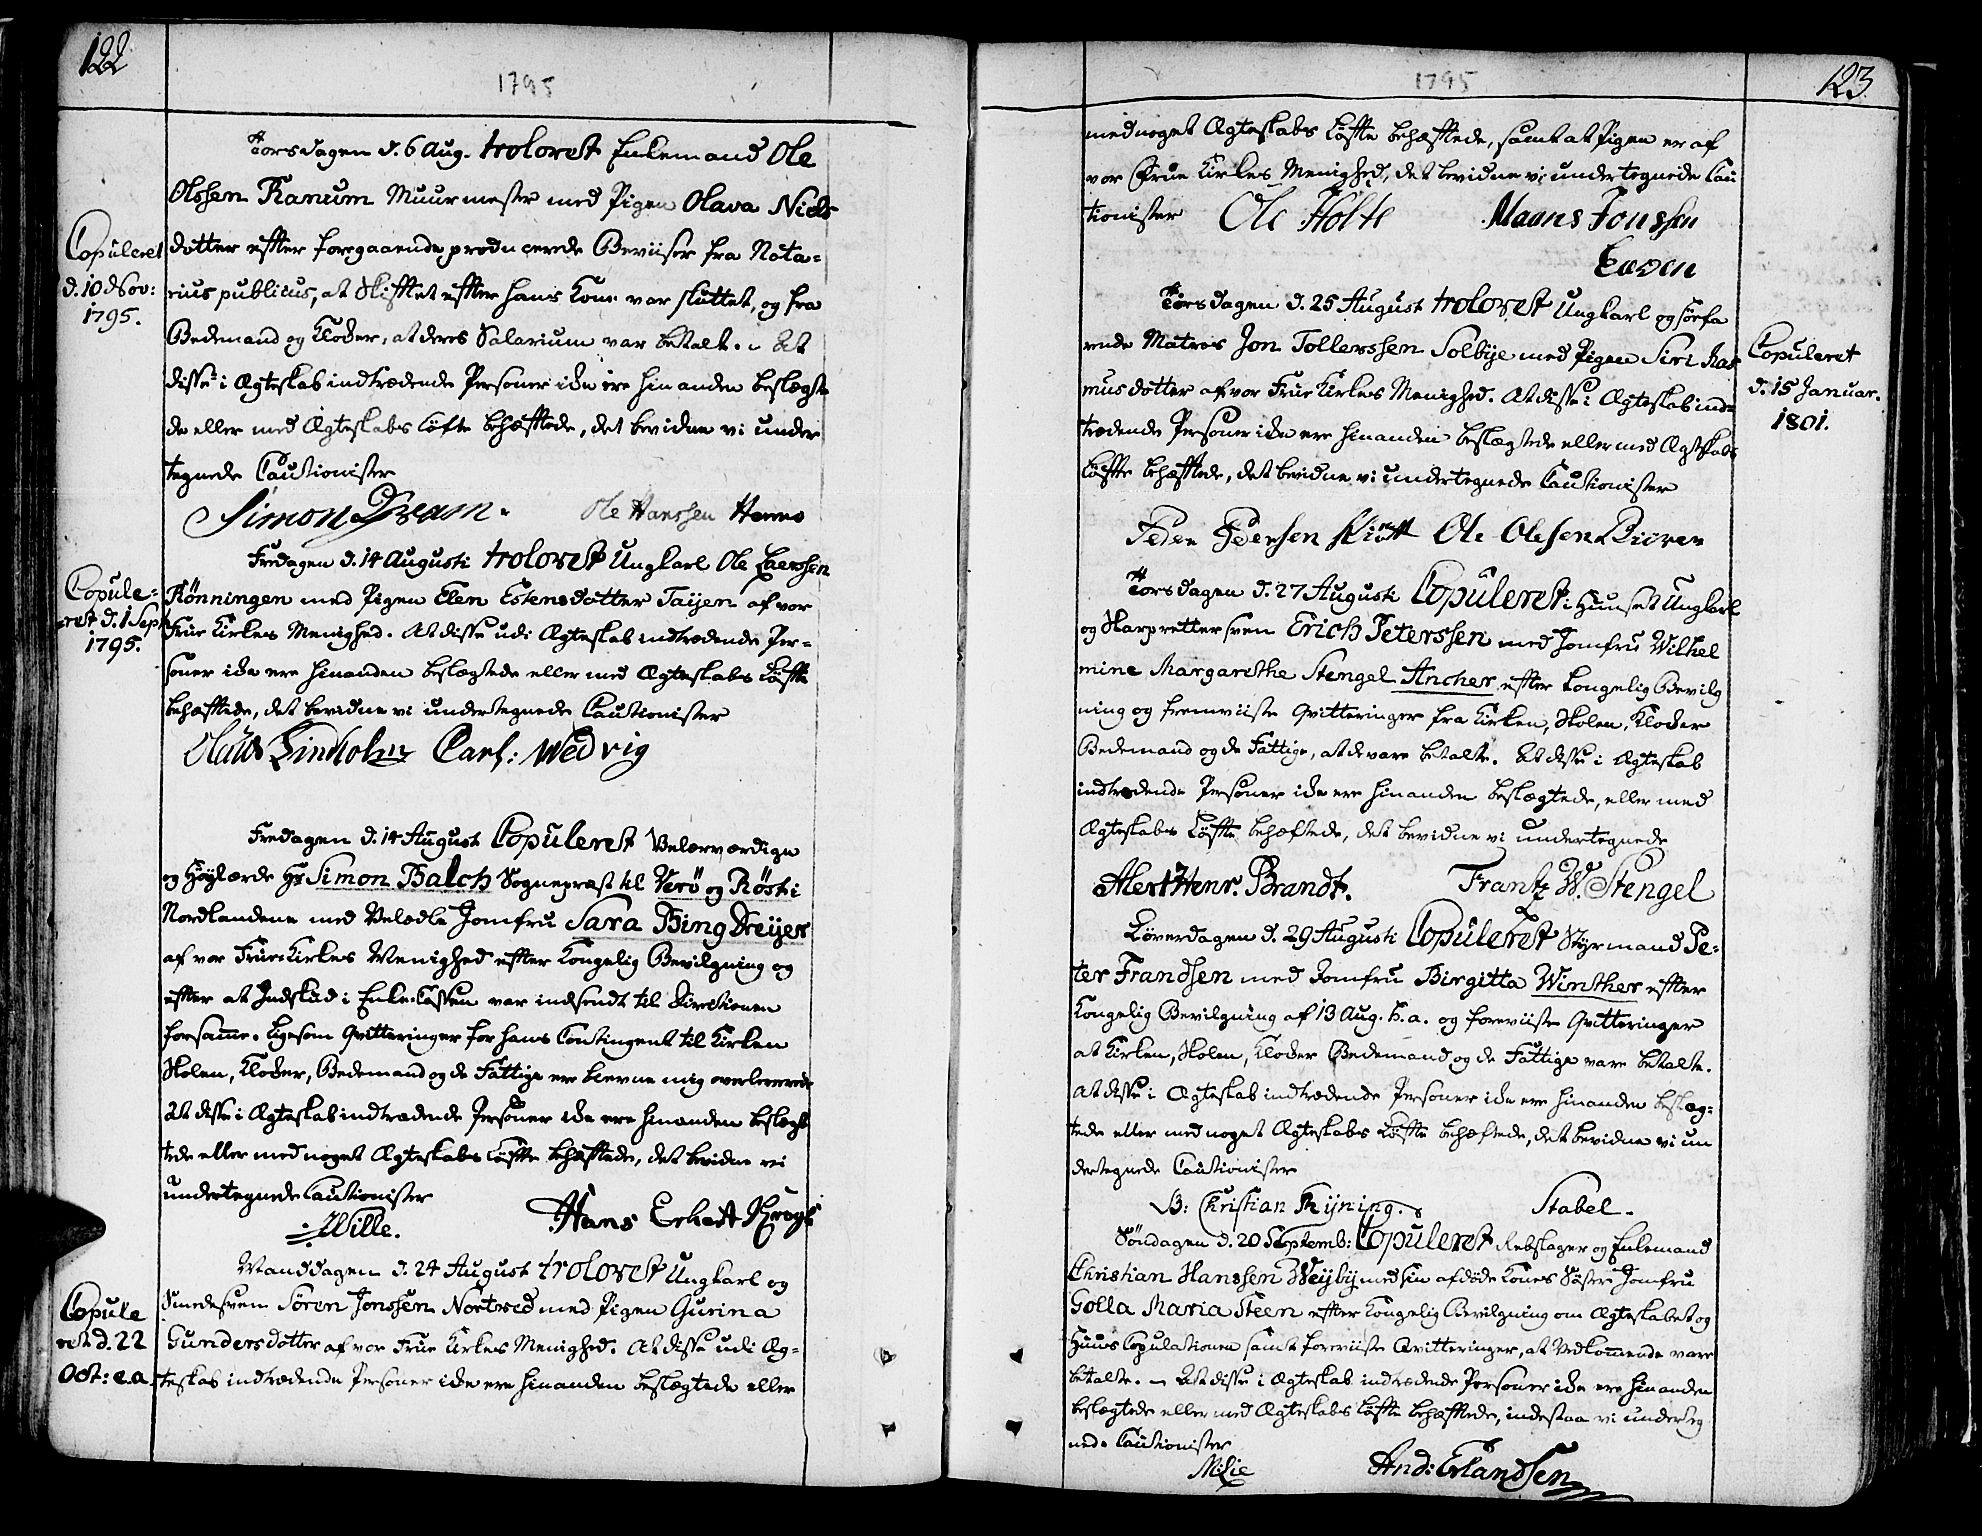 122
1795
Torsdagen d. 6 Aug. troloret Enkemand Ole
Olssen Ranum Muurmester med Pigen Olava Niels
dotter efter foregaaende producerede Beviiser fra Nota-
rius publicus, at Skifftet efter hans Kone var sluttet, og fra
Bedemand og Klocker, at deres Salarium var betalt. At
disse i Ægteskab indtrædende Personer icke ere hinanden beslægte
de eller med Ægteskabs Løfte behæfftede, det bevidne vi under
tegnede Cautionister
Copuleret
d. 10 Nov:
1795.
Simon Bram. Ole Hanssen
Fredagen d. 14 Augusti troloret Ungkarl Ole Larssen
Rönningen med Pigen Elen Estensdotter Taijen af vor
Frue Kirkes Menighed. At disse udi Ægteskab indtrædende Per-
soner icke ere hinanden beslægtede eller med Ægteskabs Løffte
behæfftede, det bevidne vi undertegnede Cautionister
Copule-
ret d. 1 Sept
1795.
Olaus Lindholm Carl: Wedvig
Fredagen d. 14 August Copuleret Velærværdige
og Høylærde Hr Simon Balch Sognepræst til Verö og Röst i
Nordlandene med Velædle Jomfru Sara Bing Dreyer
af vor Frue Kirkes Menighed effter Kongelig Bevilgning og
effter at Indskud i Enke-Cassen var indsendt til Directionen
for samme. Ligesom Qvitteringer for hans Contingent til Kirken
Skolen, Klocker, Bedemand og de Fattige ere blevne mig overleverede
At disse i Ægteskab indtrædende Personer icke ere hinanden beslægt
tede eller med noget Ægteskabs Løffte behæftede, det bevidne vi
undertegnede Cautionister
Wille. Hans Erhart Krogh
Manddagen d. 24 August troloret Ungkarl og
Smedesvem Sören Jonssen Nortvet med Pigen Gurina
Gundersdotter af vor Frue Kirkes Menighed. At disse udi Æg-
teskab indtrædende Personer icke ere hinanden beslægtede eller
Copule
ret d. 22
Oct: e.a.
123
1795
med noget Ægteskabs Løffte behæfftede, samt at Pigen er af
vor Frue Kirkes Menighed, det bevidne vi undertegnede Cau
tionister Ole Holte Maans Jonssen
Torsdagen d. 25 August troloret Ungkarl og søefa
rende Matros Jon Tollerssen Solbye med Pigen Siri Ras
musdotter af vor Frue Kirkes Menighed. At disse i Ægteskab ind-
trædende Personer icke ere hinanden beslægtede eller med Ægteskabs
Løffte behæfftede, det bevidne vi undertegnede Cautionister
Copuleret
d. 15 Januar.
1801.
Peder Pedersen Ole Olesen
Torsdagen d. 27 Augusti Copuleret i Huuset Ungkarl
og Skarprettersven Erich Peterssen med Jomfru Wilhel
mine Margarethe Stengel Ancher, effter Kongelig Bevilg
ning og fremviiste Qvitteringer fra Kirken, Skolen, Klocker
Bedemand og de Fattige, at de vare betalte. At disse i Ægteskab
indtrædende Personer icke ere hinanden beslægtede, eller med
Ægteskabs Løffte behæftede, det bevidne vi undertegnede
Alert Henr. Brandt. Frantz W. Stengel
Løverdagen d. 29 Augusti Copuleret Styrmand Pe-
ter Frandsen med Jomfru Birgitta Winther effter
Kongelig Bevilgning af 13 Aug. h. a. og foreviiste Qvitteringer
at Kirken, Skolen, Klocker Bedemand og de Fattige vare betalte.
At disse i Ægteskab indtrædende Personer icke ere hinanden beslæg-
tede eller med noget Ægteskabs Løffte behæftede, det bevidne vi un
dertegnede Cautionister
B: Christian Rijning. Stabel.
Söndagen d. 20 Septemb: Copuleret Rebslager og Enkemand
Christian Hanssen Weyby med sin afdöde Kones Söster Jomfru
Golla Maria Steen effter Kongelig Bevilgning om Ægteskabet og
Huus Copulationen samt foreviiste Qvitteringer, at Vedkommende vare
betalte. At disse i Ægteskab indtrædende Personer icke ere hinanden
beslægtede eller med Ægteskabs Løffte behæfftede, indestaa vi underteg
nede Cautionister
And: Erlandsen